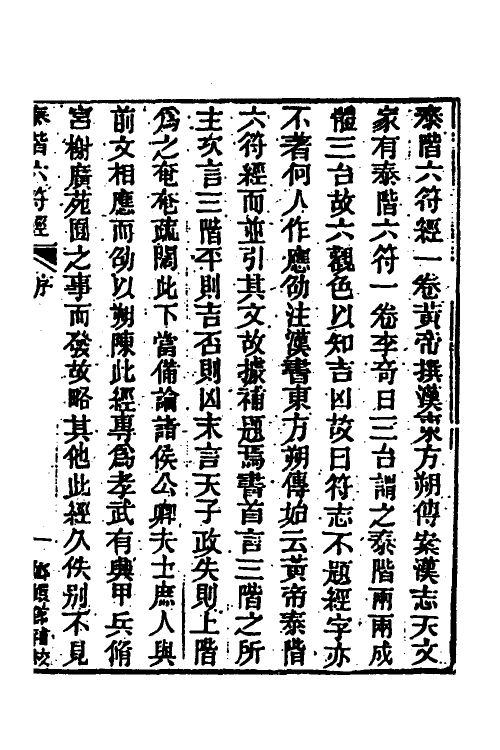 泰階六符經一卷黃帝撰漢東方朔傳案漢志天文
家有泰階六符一卷李奇曰三台謂之泰階兩兩成
體三台故六觀色以知吉凶故曰符志不題經字亦
不著何人作應劭注漢書東方朔傳始云黃帝泰階
六符經而並引其文故據補題焉書首言三階之所
主次言三階平則吉否則凶末言天子政失則上階
為之奄奄疏闊此下當備論諸侯公卿大夫士庶人與
前文相應而劭以朔陳此經專為孝武有興甲兵脩
宮榭廣苑囿之事而發故略其他此經久佚別不見
泰階六符經 序 一